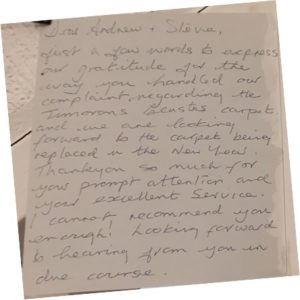 Dear Andrew + Stevie,
Just a few words to express
our gratitude for the
way you handled our
complaint, regarding the
carpet,
and we are looking
forward to the carpet being
replaced in the New Year.
Thankyou so much for
your prompt attention and
your excellent Service.
I cannot recommend you
enough! Looking forward
to hearing from you in
due course.